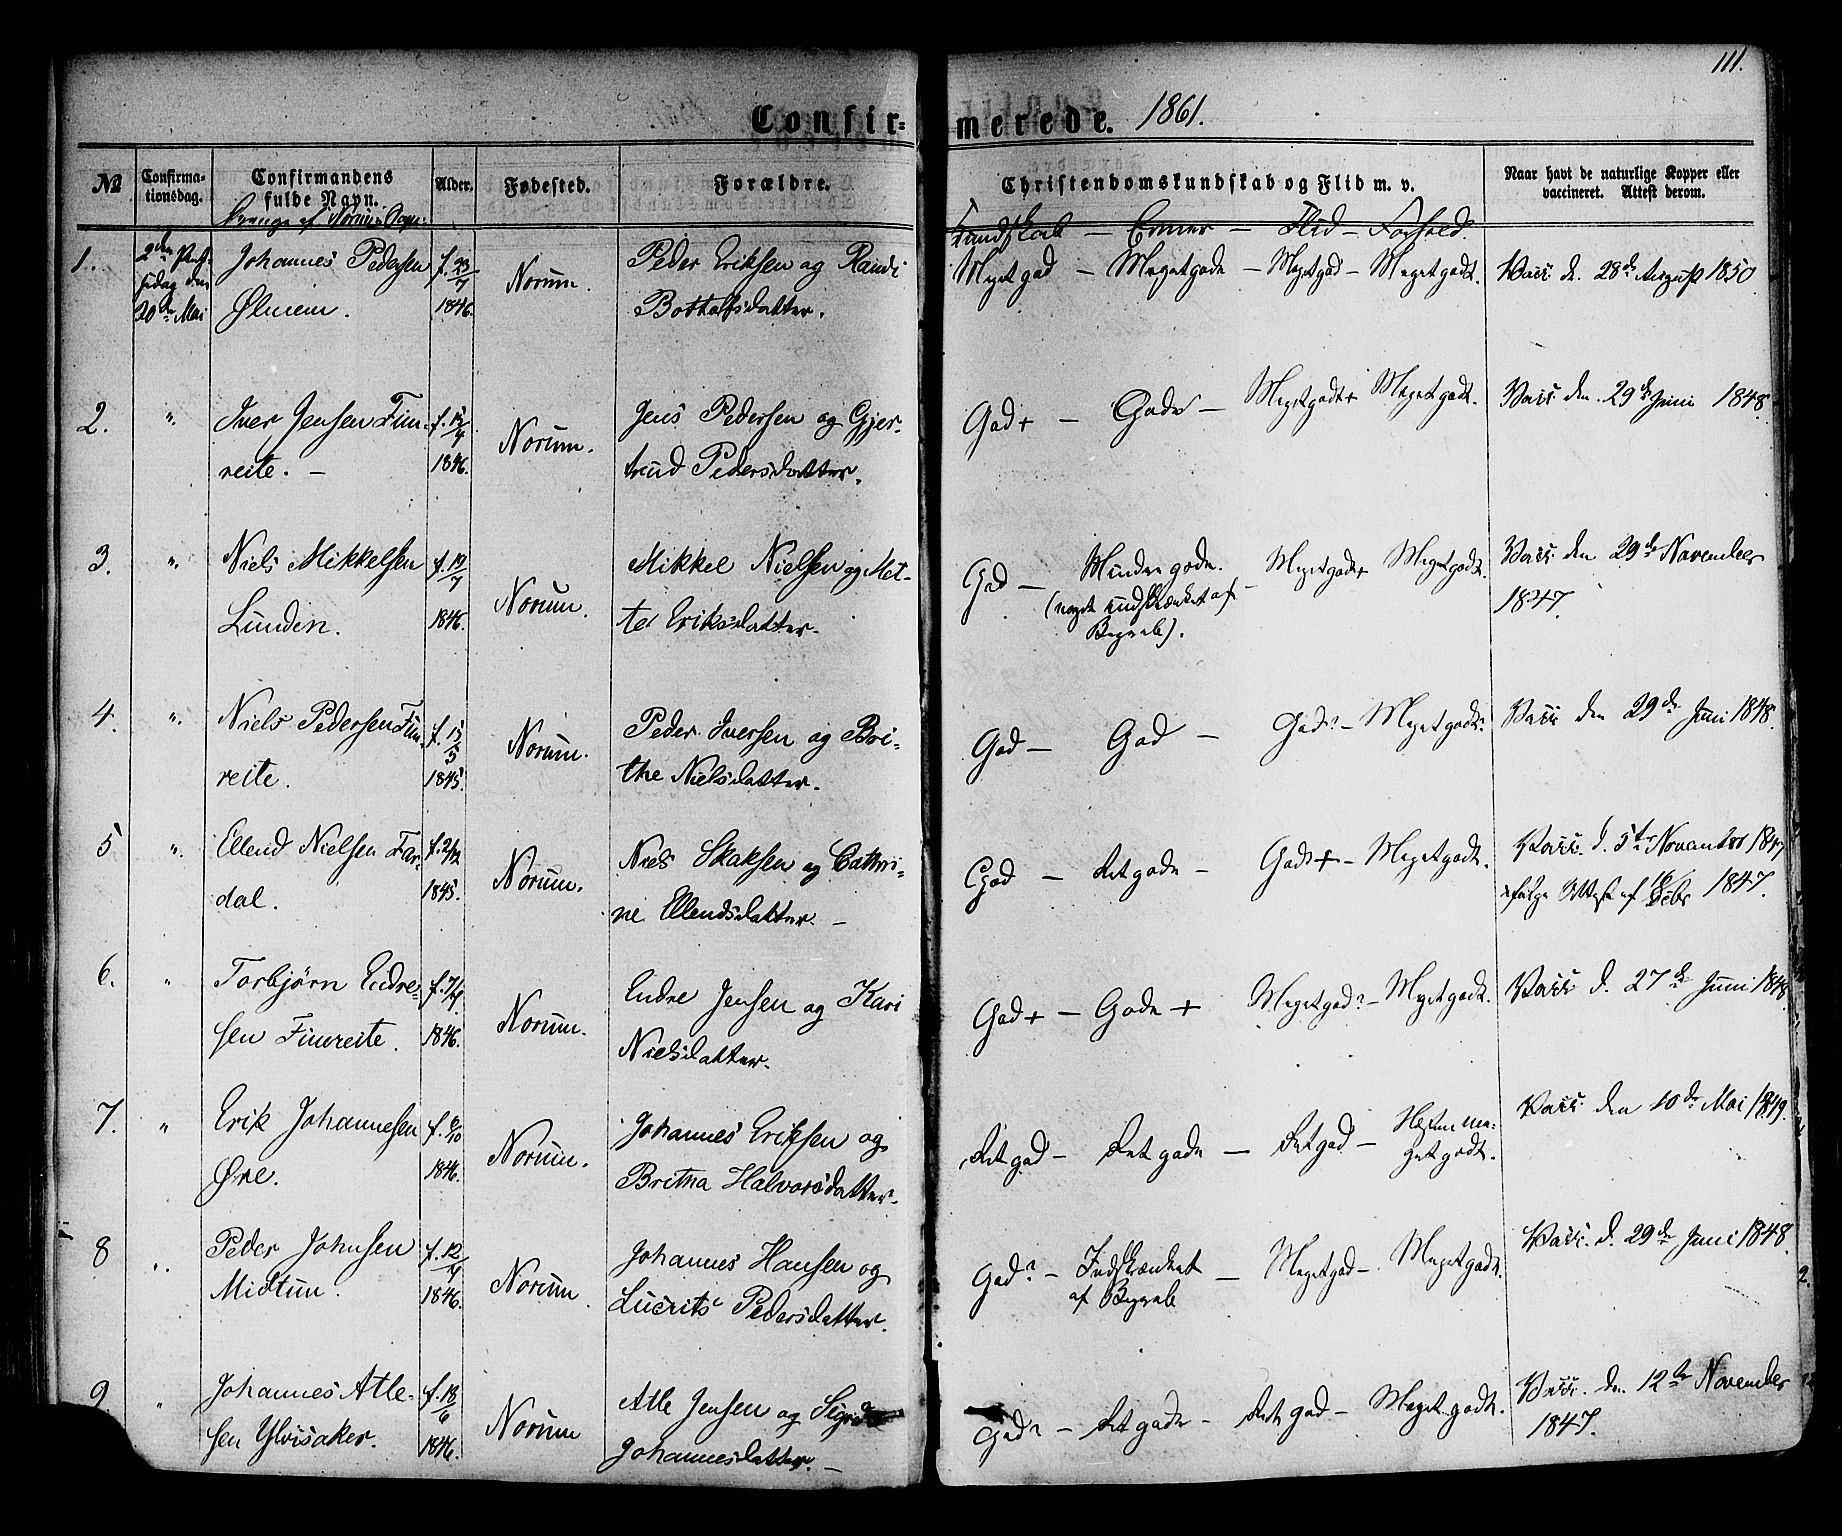 111.
Confir-
merede. 1861.
№
Confirma-
tionsdag.
Confirmandens
fulde Navn.
Alder.
Fødested.
Forældre.
Christendomskundskab og Flid m. v.
Naar havt de naturlige Kopper eller
vaccineret. Attest derom.
Drenge af Norums Sogn.
Kundskab — Evner — Flid — Forhold.
1.
2den
den
20de Mai
Johannes Pedersen
Ølmeim.
f. 23/7
1846.
Norum.
Peder Eriksen og Randi
Bottolfsdatter.
Meget god — Meget gode — Meget god — Meget godt.
Vacc. d. 28de August 1850
2.
"
Iver Jensen Fim-
reite. —
f. 15/4
1846.
Norum.
Jens Pedersen og Gjer-
trud Pedersdatter.
God + — Gode — Meget god + Meget godt.
Vacc. den 29de Juni 1848.
3.
"
Niels Mikkelsen
Lunden.
f. 19/7
1846.
Norum.
Mikkel Nielsen og Met-
te Eriksdatter.
God — Mindre gode. Meget god + Meget godt.
(noget indskrænket af —
Begreb).
Vacc. den 29de November
1847.
4.
".
Niels Pedersen Fim-
reite.
f. 15/3
1845.
Norum.
Peder Iversen og Bri-
the Nielsdatter.
God — God — God? — Meget godt.
Vacc. den 29de Juni 1848.
5
".
Ellend Nielsen Far-
dal.
f. 2/12
1845.
Norum.
Niels Skaksen og Cathri-
ne Ellendsdatter. —
God — Ret gode — God + — Meget godt.
Vacc. d. 5te November 1847
ifølge Attest af 18/ Debr 1847.
6.
"
Torbjørn Endre-
sen Fimreite.
f. 7/4
1846.
Norum.
Endre Jensen og Kari
Nielsdatter.
God + — Gode + Meget god? — Meget godt.
Vacc. d. 27de Juni 1848.
7.
"
Erik Johannesen
Øre.
f. 6/10
1846.
Norum.
Johannes Eriksen og
Britha Halvorsdatter.
Ret god — Ret gode — Ret god — Hidtil me-
get godt.
Vacc. den 10de Mai 1849.
8
".
Peder Johnsen
Midtun.
f. 12/4
1846.
Norum.
Johannes Hansen og
Lucrits Pedersdatter.
God? — Indskrænket — Meget god — Meget godt.
af Begreb
Vacc. d. 29de Juni 1848.
9
"
Johannes Atle-
sen Ylvisaker.
f. 18/6
1846.
Norum
Atle Jensen og Sigrid
Johannesdatter. —
God? — Ret gode — Ret god — Meget godt.
Vacc. den 12te November
1847.